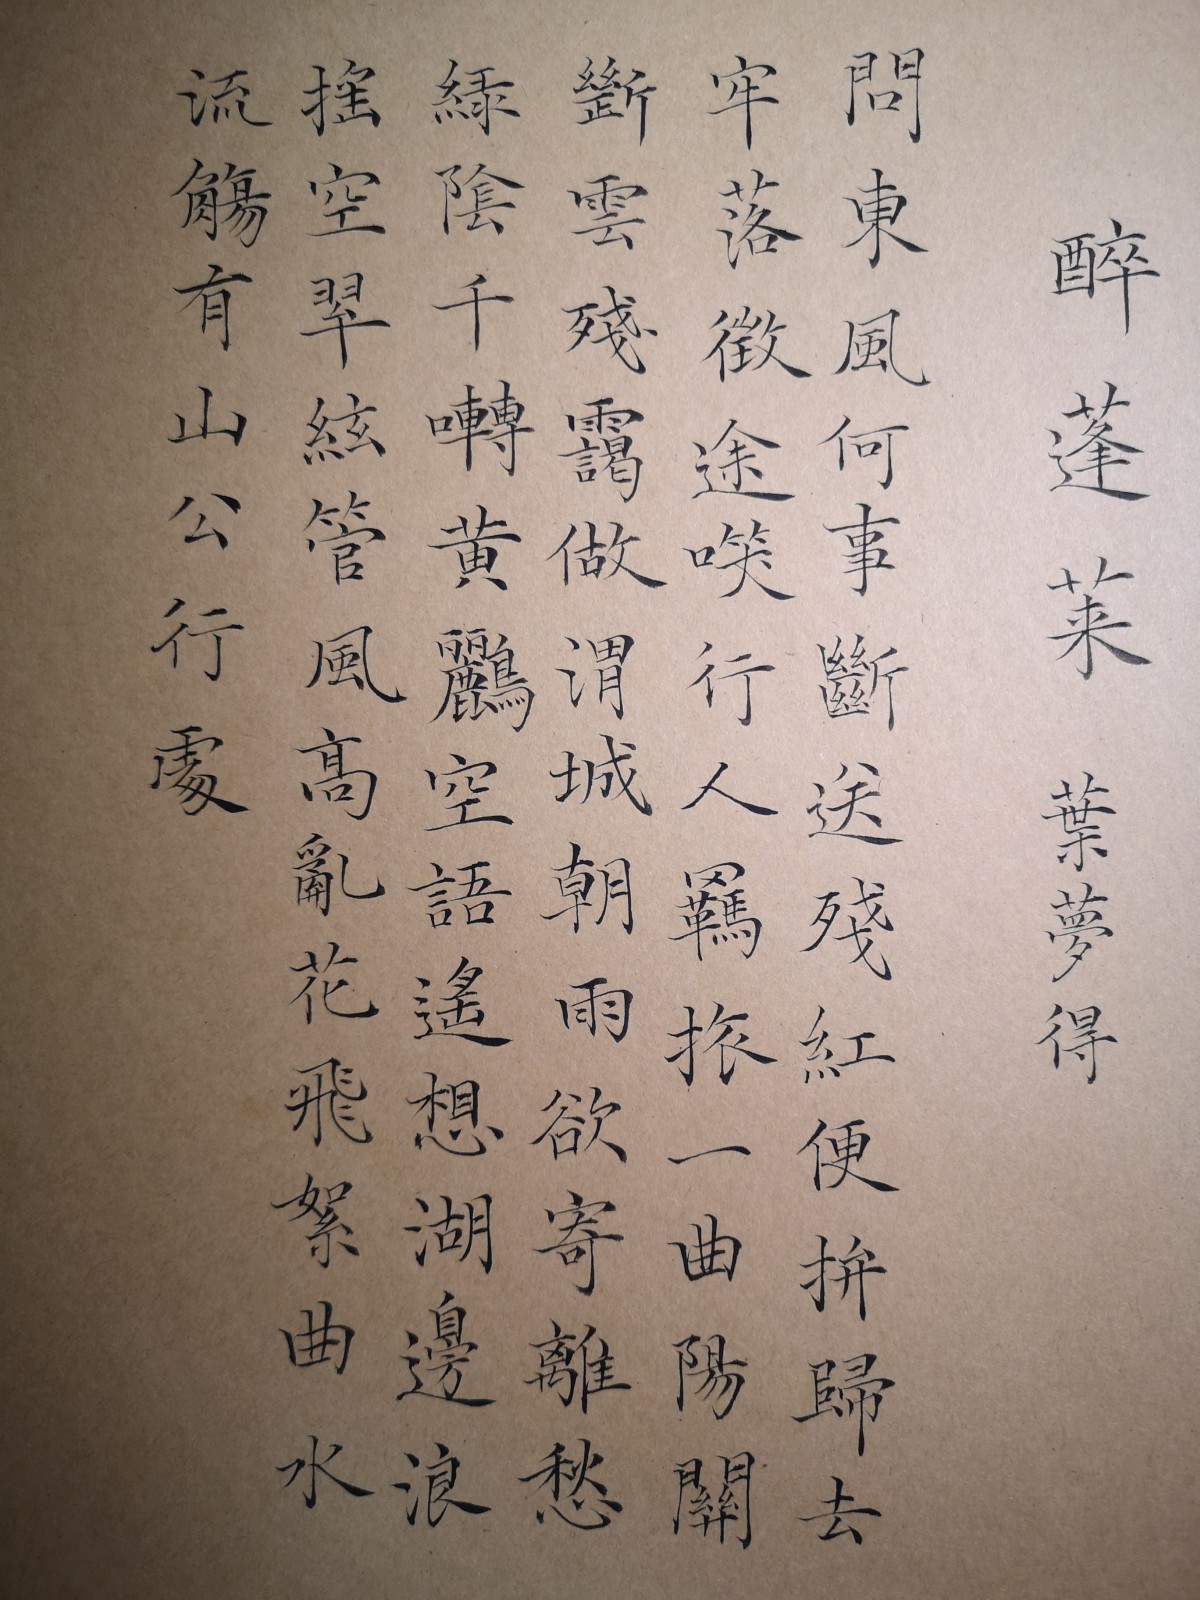 醉蓬莱 葉夢得
問東風何事斷送殘紅便拚歸去
牢落征途笑行人羈旅一曲陽關
斷雲殘靄做渭城朝雨欲寄離愁
綠陰千囀黃鸝空語遙想湖邊浪
搖空翠絃管風高亂花飛絮曲水
流觴有山公行處